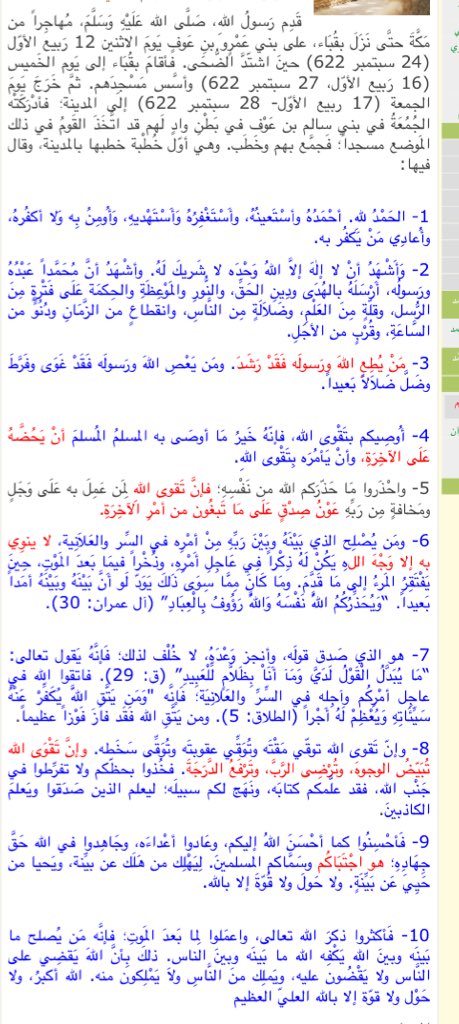 قَدِم رَسولُ الله، صَلَّى الله عَلَيْهِ وَسَلَّمَ، مهُاجراً من
مَكَّةَ حتَّى نَزَلَ بقُبَاء، على بني عَمْرِو بنِ عَوفٍ يَومَ الإثنين 12 رَبيع الأوّل
(24 سبتمبر 622) حينَ اشتَدَّ الضُّحَى. فأقامَ بقُبَاء إلى يَومِ الخَميس
(16 رَبيع الأوّل، 27 سبتمبر 622) وأسَّس مَسجِدَهم. ثمَّ خَرَجَ يَومَ
الجمعة (17 ربيع الأول- 28 سبتمبر 622) إلى المدينة؛ فأدرَكَتْه
الجُمُعَةُ في بني سالم بن عَوْف في بَطْنِ وادٍ لَهم قد اتَّخَذَ القَومُ في ذلك
المَوضع مسجداً؛ فجمَّع بهم وخَطَب. وهي أوّل خُطْبة خطبها بالمدينة، وقال
فيها:
1- الحَمْدُ لله. أحْمَدُهُ وأستَعينُهُ، وأستَغْفِرُهُ وَأسْتَهْديهِ، وَأُومِنُ بِهِ وَلا أكفُرهُ،
وأُعادي مَنْ يَكفُر به.
2- وَأَشْهَدُ أنْ لا إلهَ إلاَّ اللهُ وَحْدَه لا شريكَ لَهُ. وأشهَدُ أنَّ مُحَمَّداً عَبْدُهُ
ورَسولُه، أَرْسَلَهُ بالهُدَى ودِينِ الحَقِّ، والنُورِ والمَوْعِظَةِ والحِكمَة عَلَى فَتْرةٍ مِنَ
الرُّسل، وقلَّةٍ مِنَ العَلمِ، وضَلالَةٍ مِن النَّاسِ، وانقطاعٍ من الزَّمانِ ودُنُوٍّ من
السَّاعَةِ، وقُرْبٍ من الأجَلِ.
3- مَنْ يُطِعِ اللهَ ورَسولَه فَقَدْ رَشَدَ. ومن يَعْصِ اللهَ ورسولَه فَقَدْ غَوَى وفَرَّطَ
وضَلَّ ضَلالاً بَعيداً.
4- أُوصِيكم بتَقْوَى الله، فإنّهُ خَيرُ مَا أوصَى به المسلمُ المُسلمَ أنْ يَحُضَّهُ
عَلَى الآخِرَةِ، وأنْ يَأمُرَه بِتَقْوَى اللهِ.
5- واحْذَروا مَا حَذَّرَكم الله من نَفْسِهِ؛ فإنَّ تَقوى الله لِمَن عَمِلَ به عَلَى وَجَلٍ
ومَخافةٍ مِن رَبِّهِ عَوْنُ صِدْقٍ عَلَى مَا تَبغُون من أمْرِ الآخِرَةِ.
6- ومَن يُصْلِحِ الذي بَيْنَهُ وبَيْنَ رَبِّهِ مِنْ أَمْرِه في السِّر والعَلانِيَة، لا ينوِي
به إلا وَجْهَ اللهِ يَكُنْ لَهُ ذِكْراً في عَاجِلِ أمْرِهِ، وذُخْراً فيمَا بَعدَ المَوْتِ، حِينَ
يَفْتَقِرُ المَرءُ إلى مَا قَدَّمَ. ومَا كَانَ ممَّا سِوَى ذلَكَ يَوَد لَو أنَّ بَيْنَهُ وبَيْنَهُ أمَداً
بَعيداً. “وَيُحَذِّرُكُمُ اللهُ نَفْسَهُ وَاللهُ رَؤُوفٌ بِالْعِبَادِ” (آل عمران: 30).
7- هو الذي صَدق قولَه، وأنجز وَعْدَهُ، لا خُلْف لذلك؛ فإنَّهُ يَقول تعالى:
“مَا يُبَدَّلُ الْقَوْلُ لَدَيَّ وَمَآ أَنَاْ بِظَلاَّمٍ لِّلْعَبِيدِ” (ق: 29). فاتقوا الله في
عاجِل أمْرِكُم وآجِله في السِّرِّ والعَلانِيَة؛ فإنّهِ "وَمَن يَتَّقِ اللهَ يُكَفِّرْ عَنْهُ
سَيِّئَاتِهِ وَيُعْظِمْ لَهُ أَجْراً (الطلاق: 5). ومن يَتَّقِ اللهَ فَقد فازَ فَوْزاً عظيماً.
8- وإنّ تَقوى الله توقّي مَقْتَه وتُوَقِّي عقوبتَه وتُوَقّي سَخَطه. وإنَّ تَقْوَى الله
تُبَيِّضُ الوجوهَ، وتُرْضِى الرَّبَّ، وتَرْفَعُ الدَّرَجَةَ. فخُذوا بحظِّكم ولا تفرِّطوا في
جَنْبِ الله، فقد علَّمكم كتابَه، ونَهَج لكم سبيلَه؛ ليعلم الذين صَدَقوا ويَعلمَ
الكاذبينَ.
9- فَأحْسِنُوا كما أحْسَنَ اللهُ إليكم، وعَادُوا أعْداءَه، وجَاهِدوا في الله حَقَّ
جِهادِهِ؛ هو اجْتَبَاكُم وسَمَّاكم المسلمينَ. لِيَهْلِكَ من هَلَكَ عن بيِّنة، ويَحيا من
حَيِيَ عَن بَيِّنَةٍ. ولا حَولَ ولا قُوّةَ إلا بالله.
10- فَأكثروا ذكرَ الله تعالى، واعمَلوا لِما بَعدَ المَوتِ؛ فإنَّه مَن يُصلح ما
بَينَه وبينَ الله يَكْفِه الله ما بَينَه وبينَ الناس. ذلكَ بِأنَّ اللهَ يَقضي على
النَّاس ولا يَقْضُون عليه، ويَملِك منَ النَّاسِ ولا يَمْلِكون منه. الله أكبرُ، ولا
حَوْل ولا قوّة إلا بالله العليّ العظيم